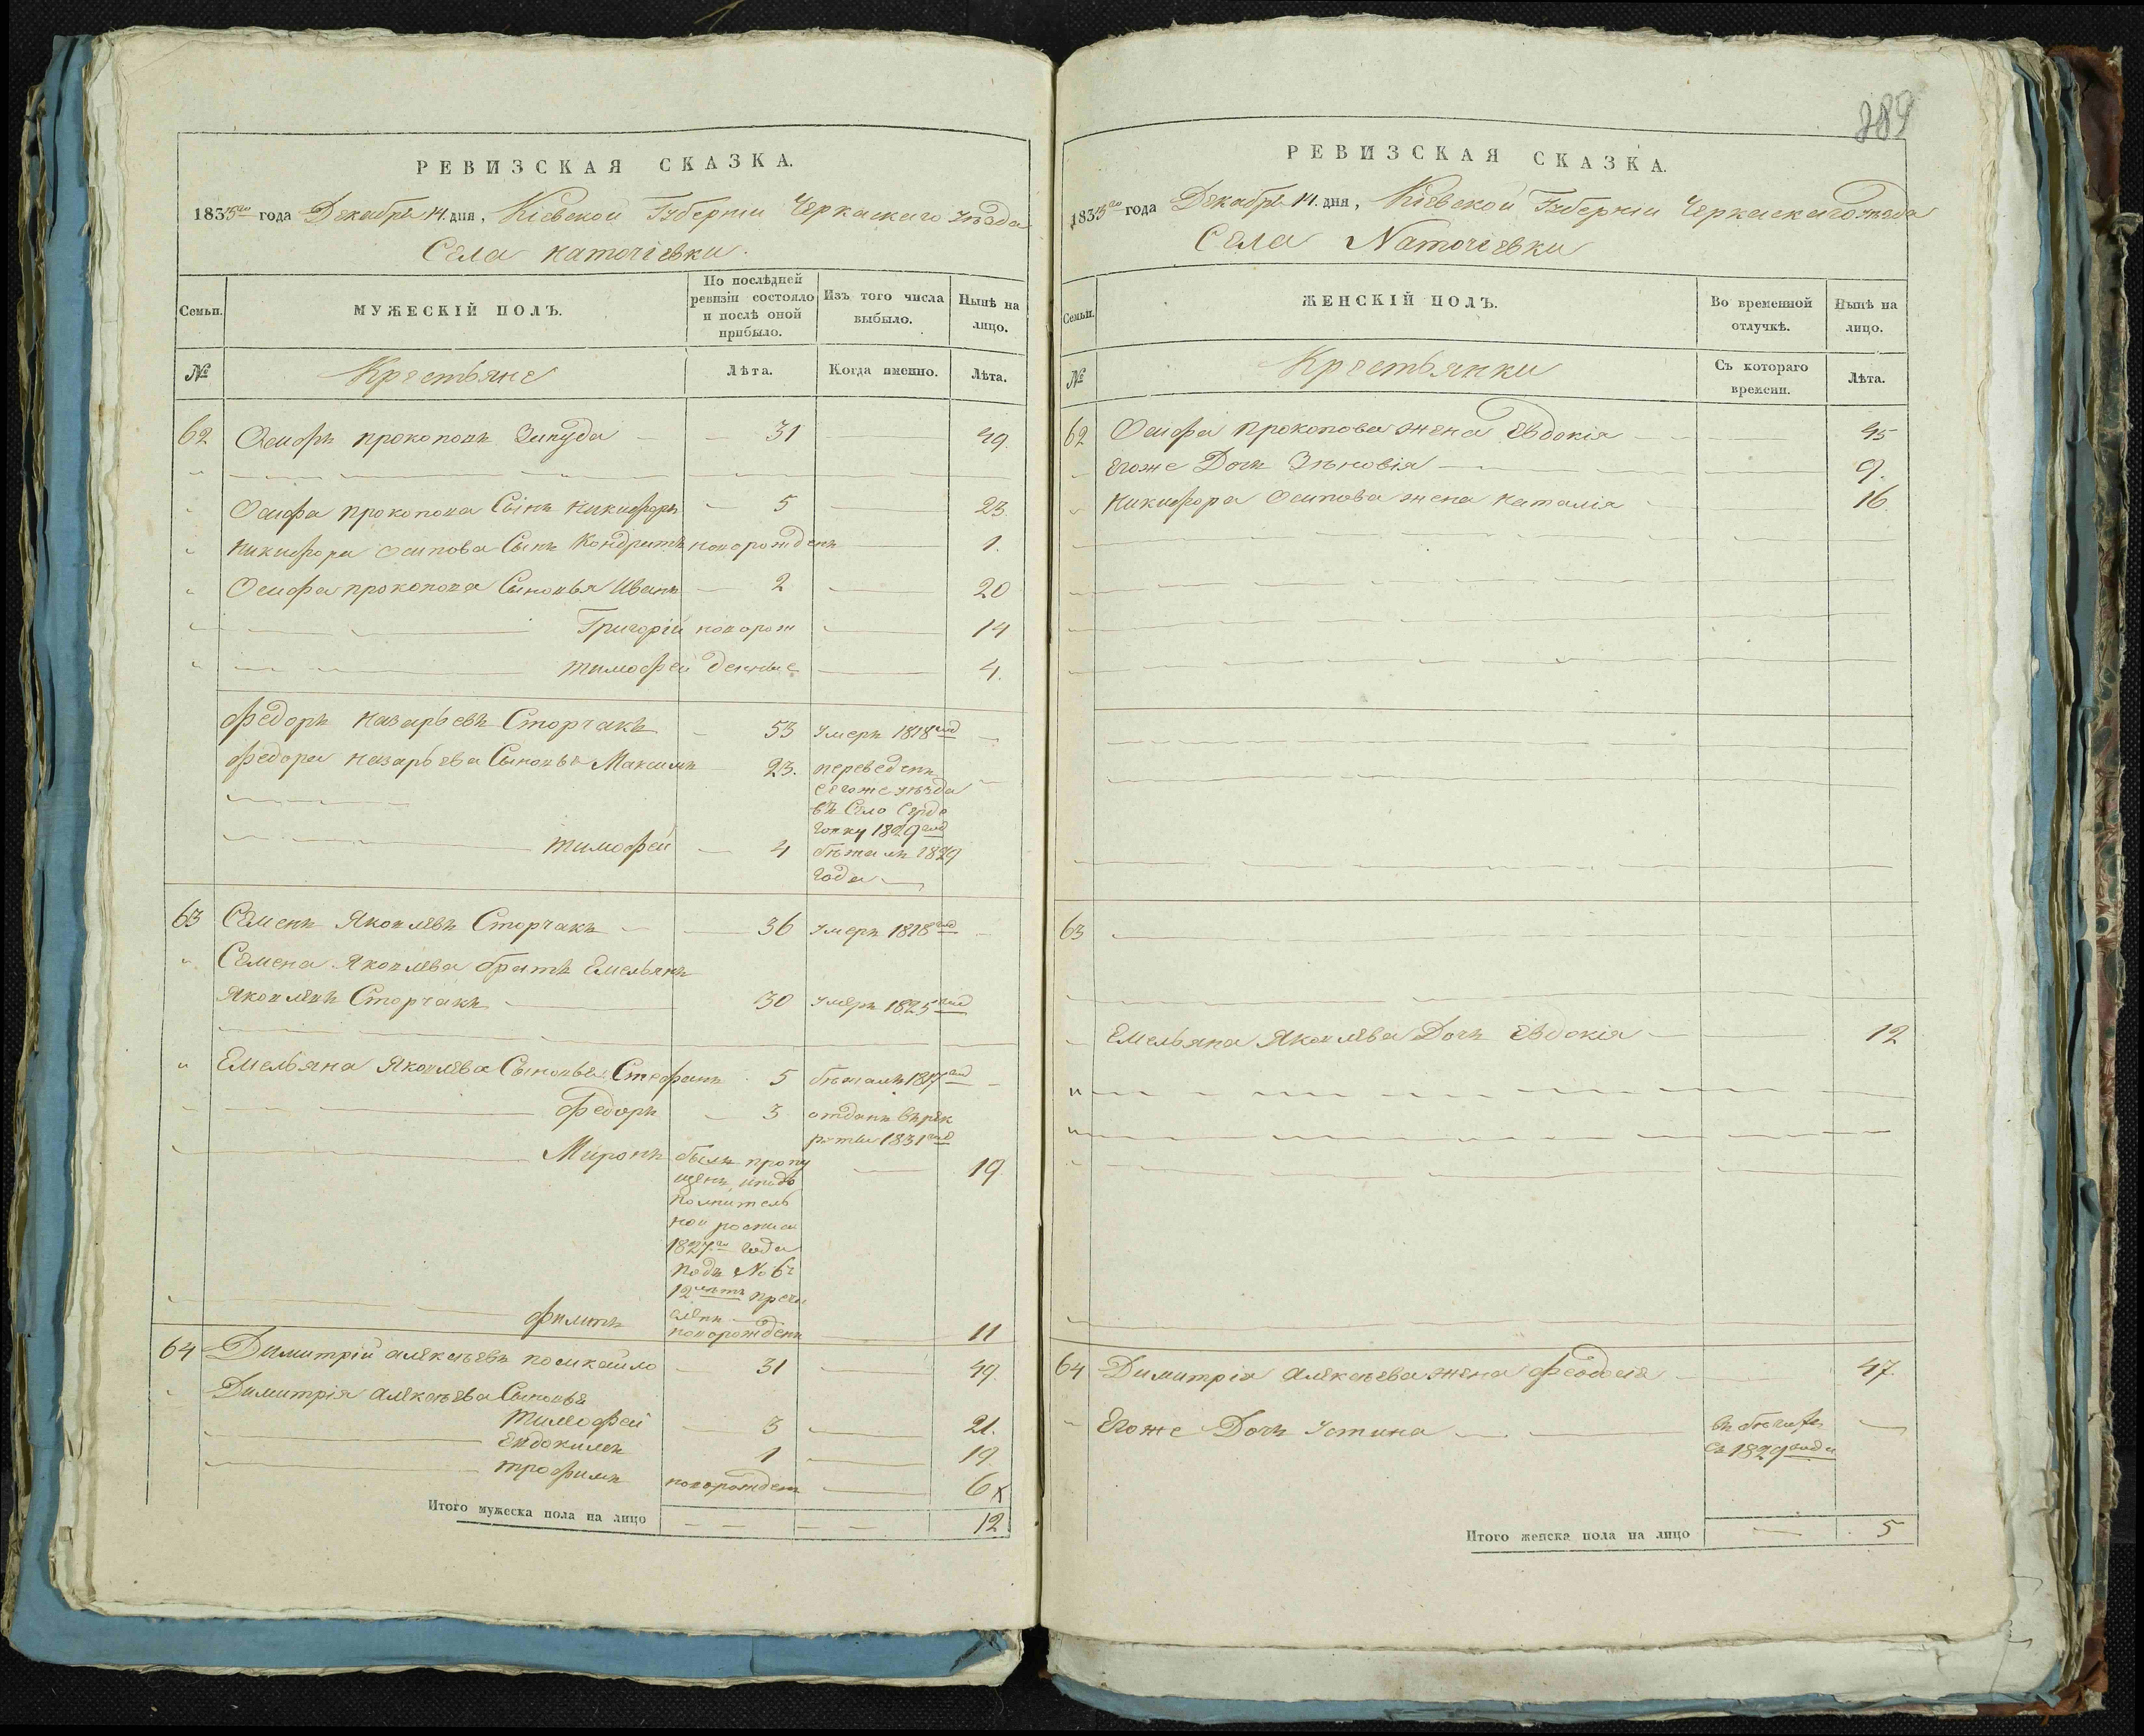 289
РЕВИЗСКАЯ СКАЗКА.
1835го года Декабря 14. дня, Кіевской Губерніи Черкаскаго уѣзда
Села
Семьи. МУЖЕСКІЙ ПОЛЪ. По послѣдней ревизіи состояло и послѣ оной прибыло. Изъ того числа выбыло. Нынѣ на лицо.
№ Крестьяне Лѣта. Когда именно. Лѣта.
62 Осифъ Прокоповъ 31 49
Осифа Прокопова Сынъ Никифоръ 5 23
Никифора Осипова Сынъ Кондратъ новорожденъ 1.
Осифа Прокопова Сыновья Иванъ 2 20
Григорій новорож 14
Тимофей денные 4.
Федоръ Назарьевъ Сторчакъ 53 умеръ 1818 год
Федора Назарьева Сыновья Максимъ 23. переведенъ
сегоже уѣзда
въ Село
1829 год
Тимофей 4 бѣжалъ 1829
года
63 Семенъ Яковлевъ Сторчакъ 36 умеръ 1818 год
Семена Яковлева братъ Емельянъ
Яковлевъ Сторчакъ 30 умеръ 1825 год
Емельяна Яковлева Сыновья Стефанъ 5 бѣжалъ 1817 год
Федоръ 3 отданъ въ рек
руты 1831 год
Миронъ былъ пропу 19
щенъ
полнитель
ной
1827го года
подъ №
12 лѣтъ причи
сленъ
Филипъ новорожденъ 11
64 Димитрій Алексѣевъ 31 49
Димитрія Алексѣева Сыновья
Тимофей 3 21.
Евдокимъ 1 19
Трофимъ новорожден 6
Итого мужеска пола на лицо 12
РЕВИЗСКАЯ СКАЗКА.
1835го года Декабря 14. дня, Кіевской Губерніи Черкаскаго уѣзда
Села
Семьи. ЖЕНСКІЙ ПОЛЪ. Во временной отлучкѣ. Нынѣ на лицо.
№ Крестьянки Съ котораго времени. Лѣта.
62 Осифа Прокопова жена Евдокія 45
Егоже Дочь Зѣновія 9.
Никифора Осипова жена Наталія 16.
63
Емельяна Яковлева Дочь Евдокія 12
64 Димитрія Алексѣева жена Феодосія 47.
Егоже Дочь Устина въ бѣгах
съ 1829 года
Итого женска пола на лицо 5